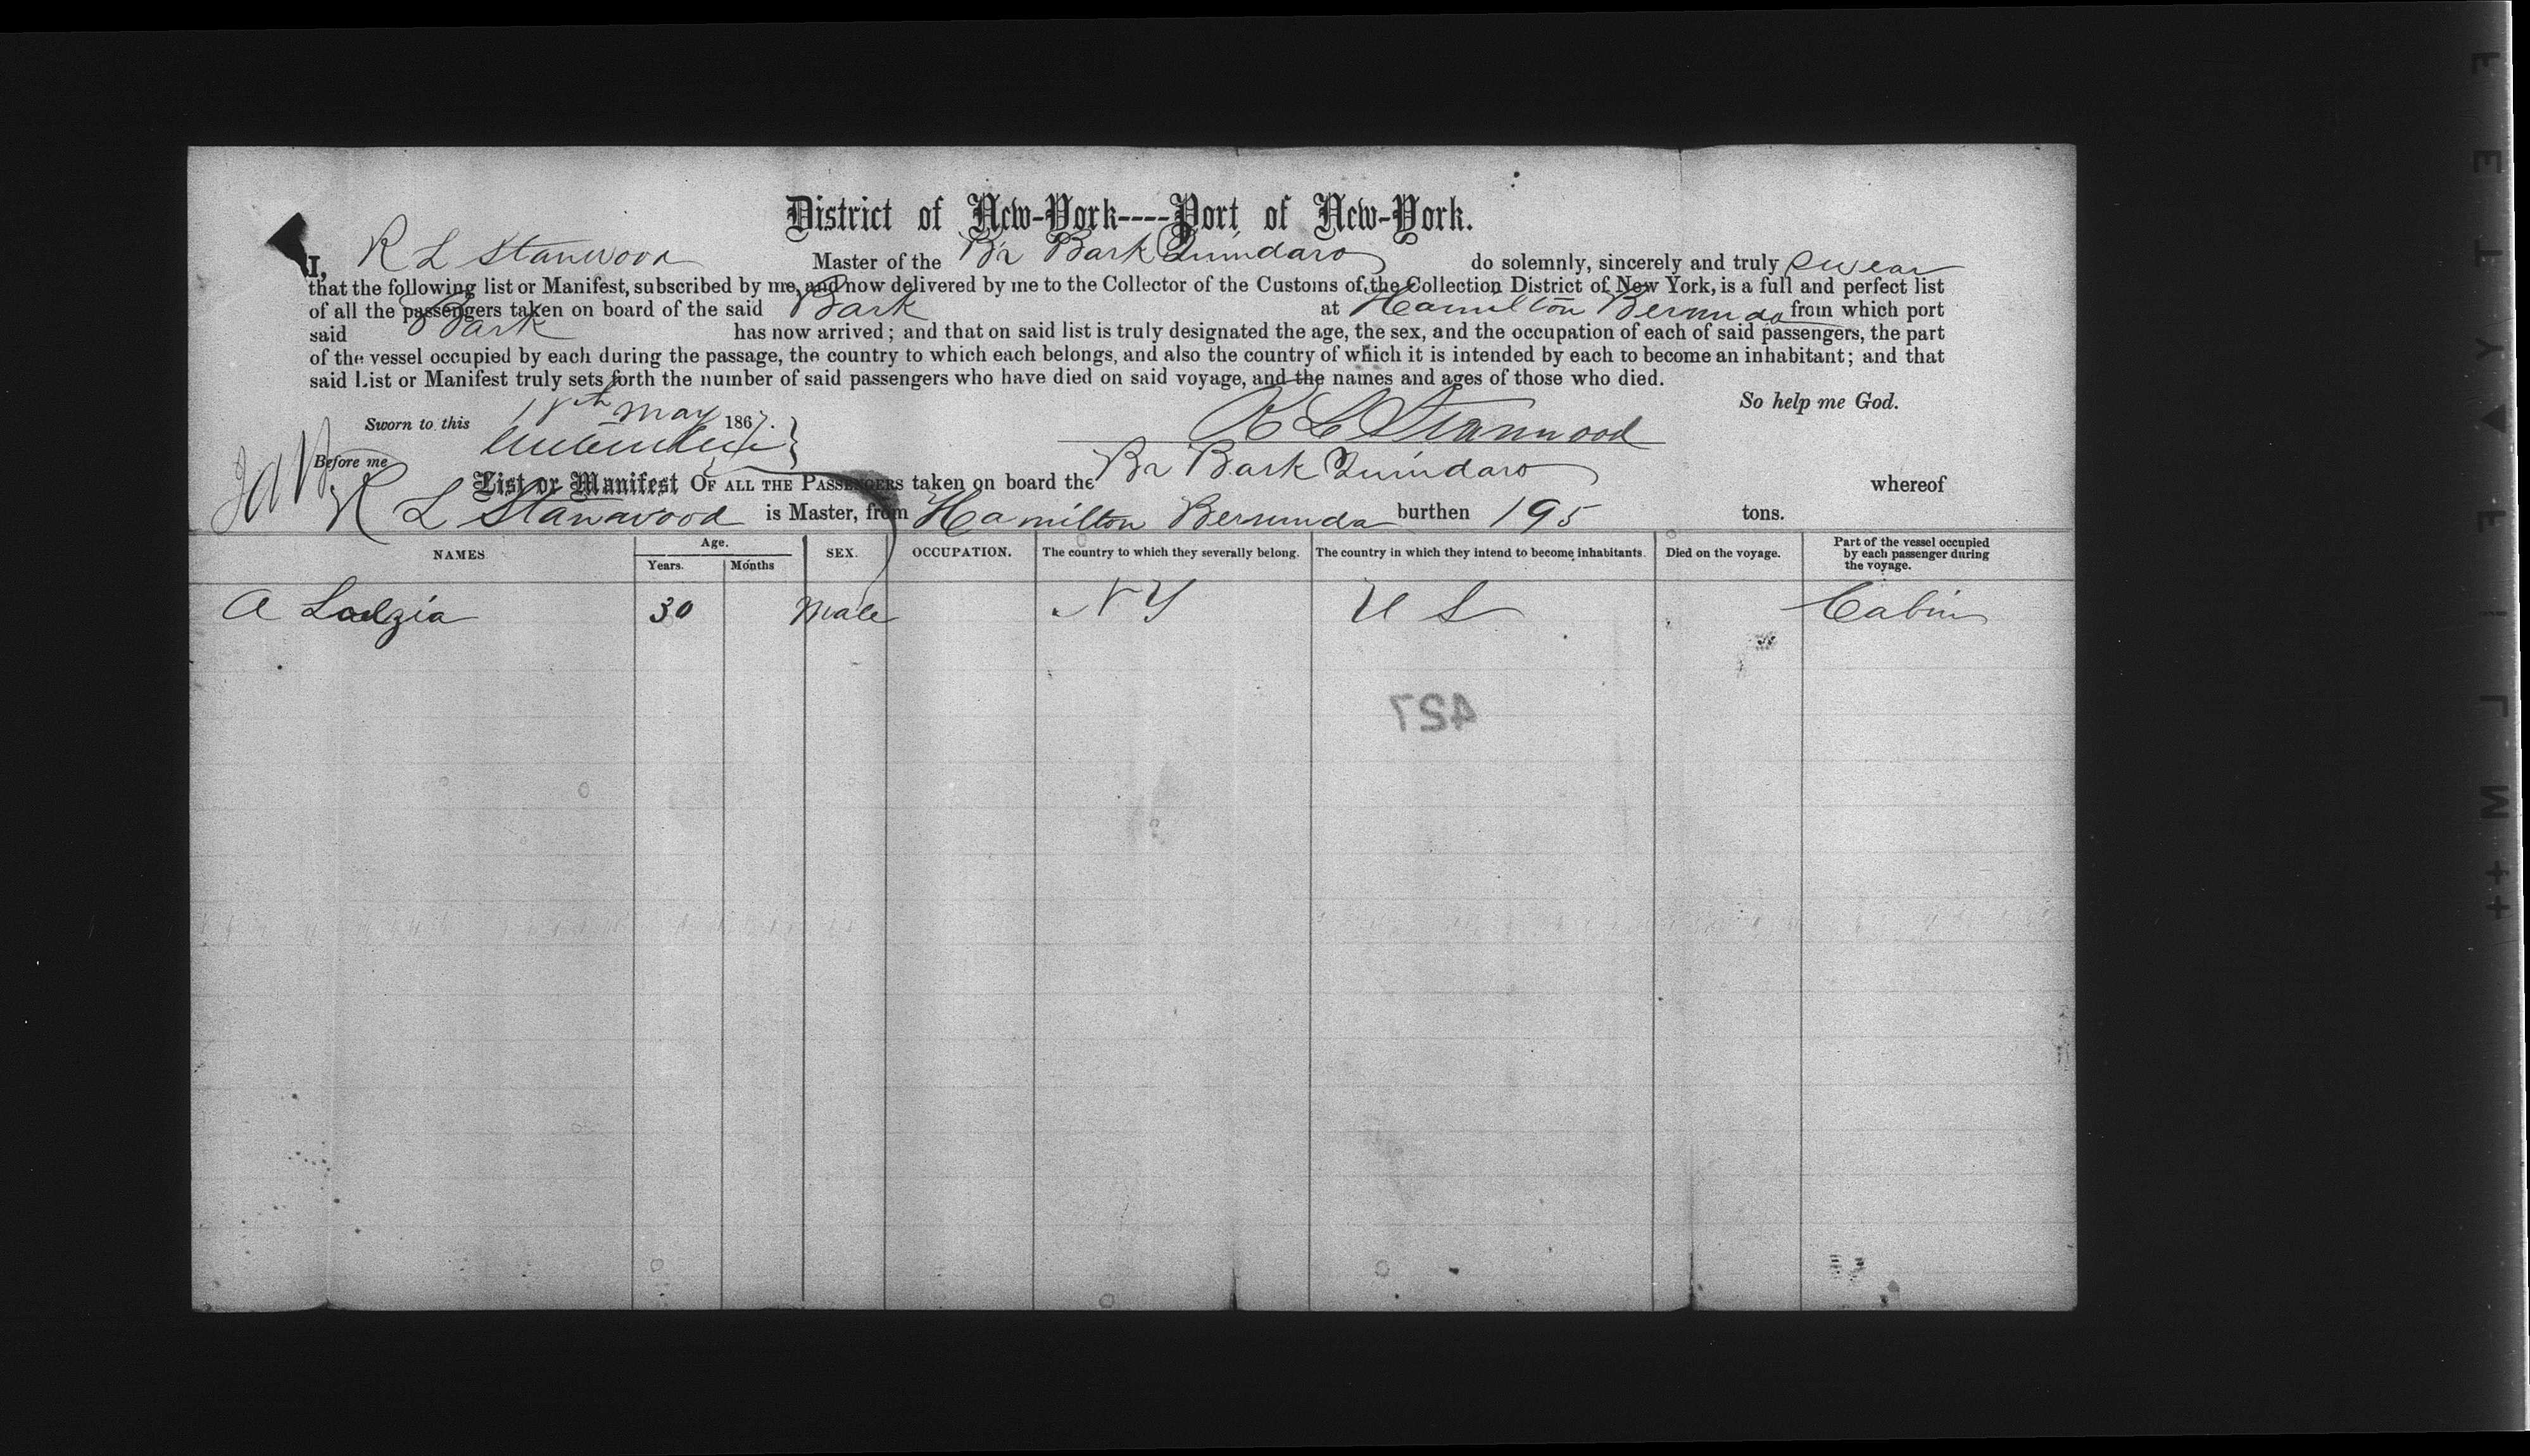 District of New-York----Port of New-York.
I, R L Stanwood Master of the Br Bark Quindaro do solemnly, sincerely and truly swear
that the following list or Manifest, subscribed by me, and now delivered by me to the Collector of the Customs of the Collection District of New York, is a full and perfect list
of all the passengers taken on board of the said Bark at Hamilton Bermuda from which port
said Bark has now arrived; and that on said list is truly designated the age, the sex, and the occupation of each of said passengers, the part
of the vessel occupied by each during the passage, the country to which each belongs, and also the country of which it is intended by each to become an inhabitant; and that
said List or Manifest truly sets forth the number of said passengers who have died on said voyage, and the names and ages of those who died.
So help me God.
Sworn to this 18th May 1867.
R L Stanwood
Before me
List or Manifest OF ALL THE PASSENGERS taken on board the Br Bark Quindaro whereof
R L Stanwood is Master, from Hamilton Bermuda burthen 195 tons.
NAMES Age. Years. Months SEX. OCCUPATION. The country to which they severally belong. The country in which they intend to become inhabitants. Died on the voyage. Part of the vessel occupied by each passenger during the voyage.
A 30 Male N Y U S Cabin
427